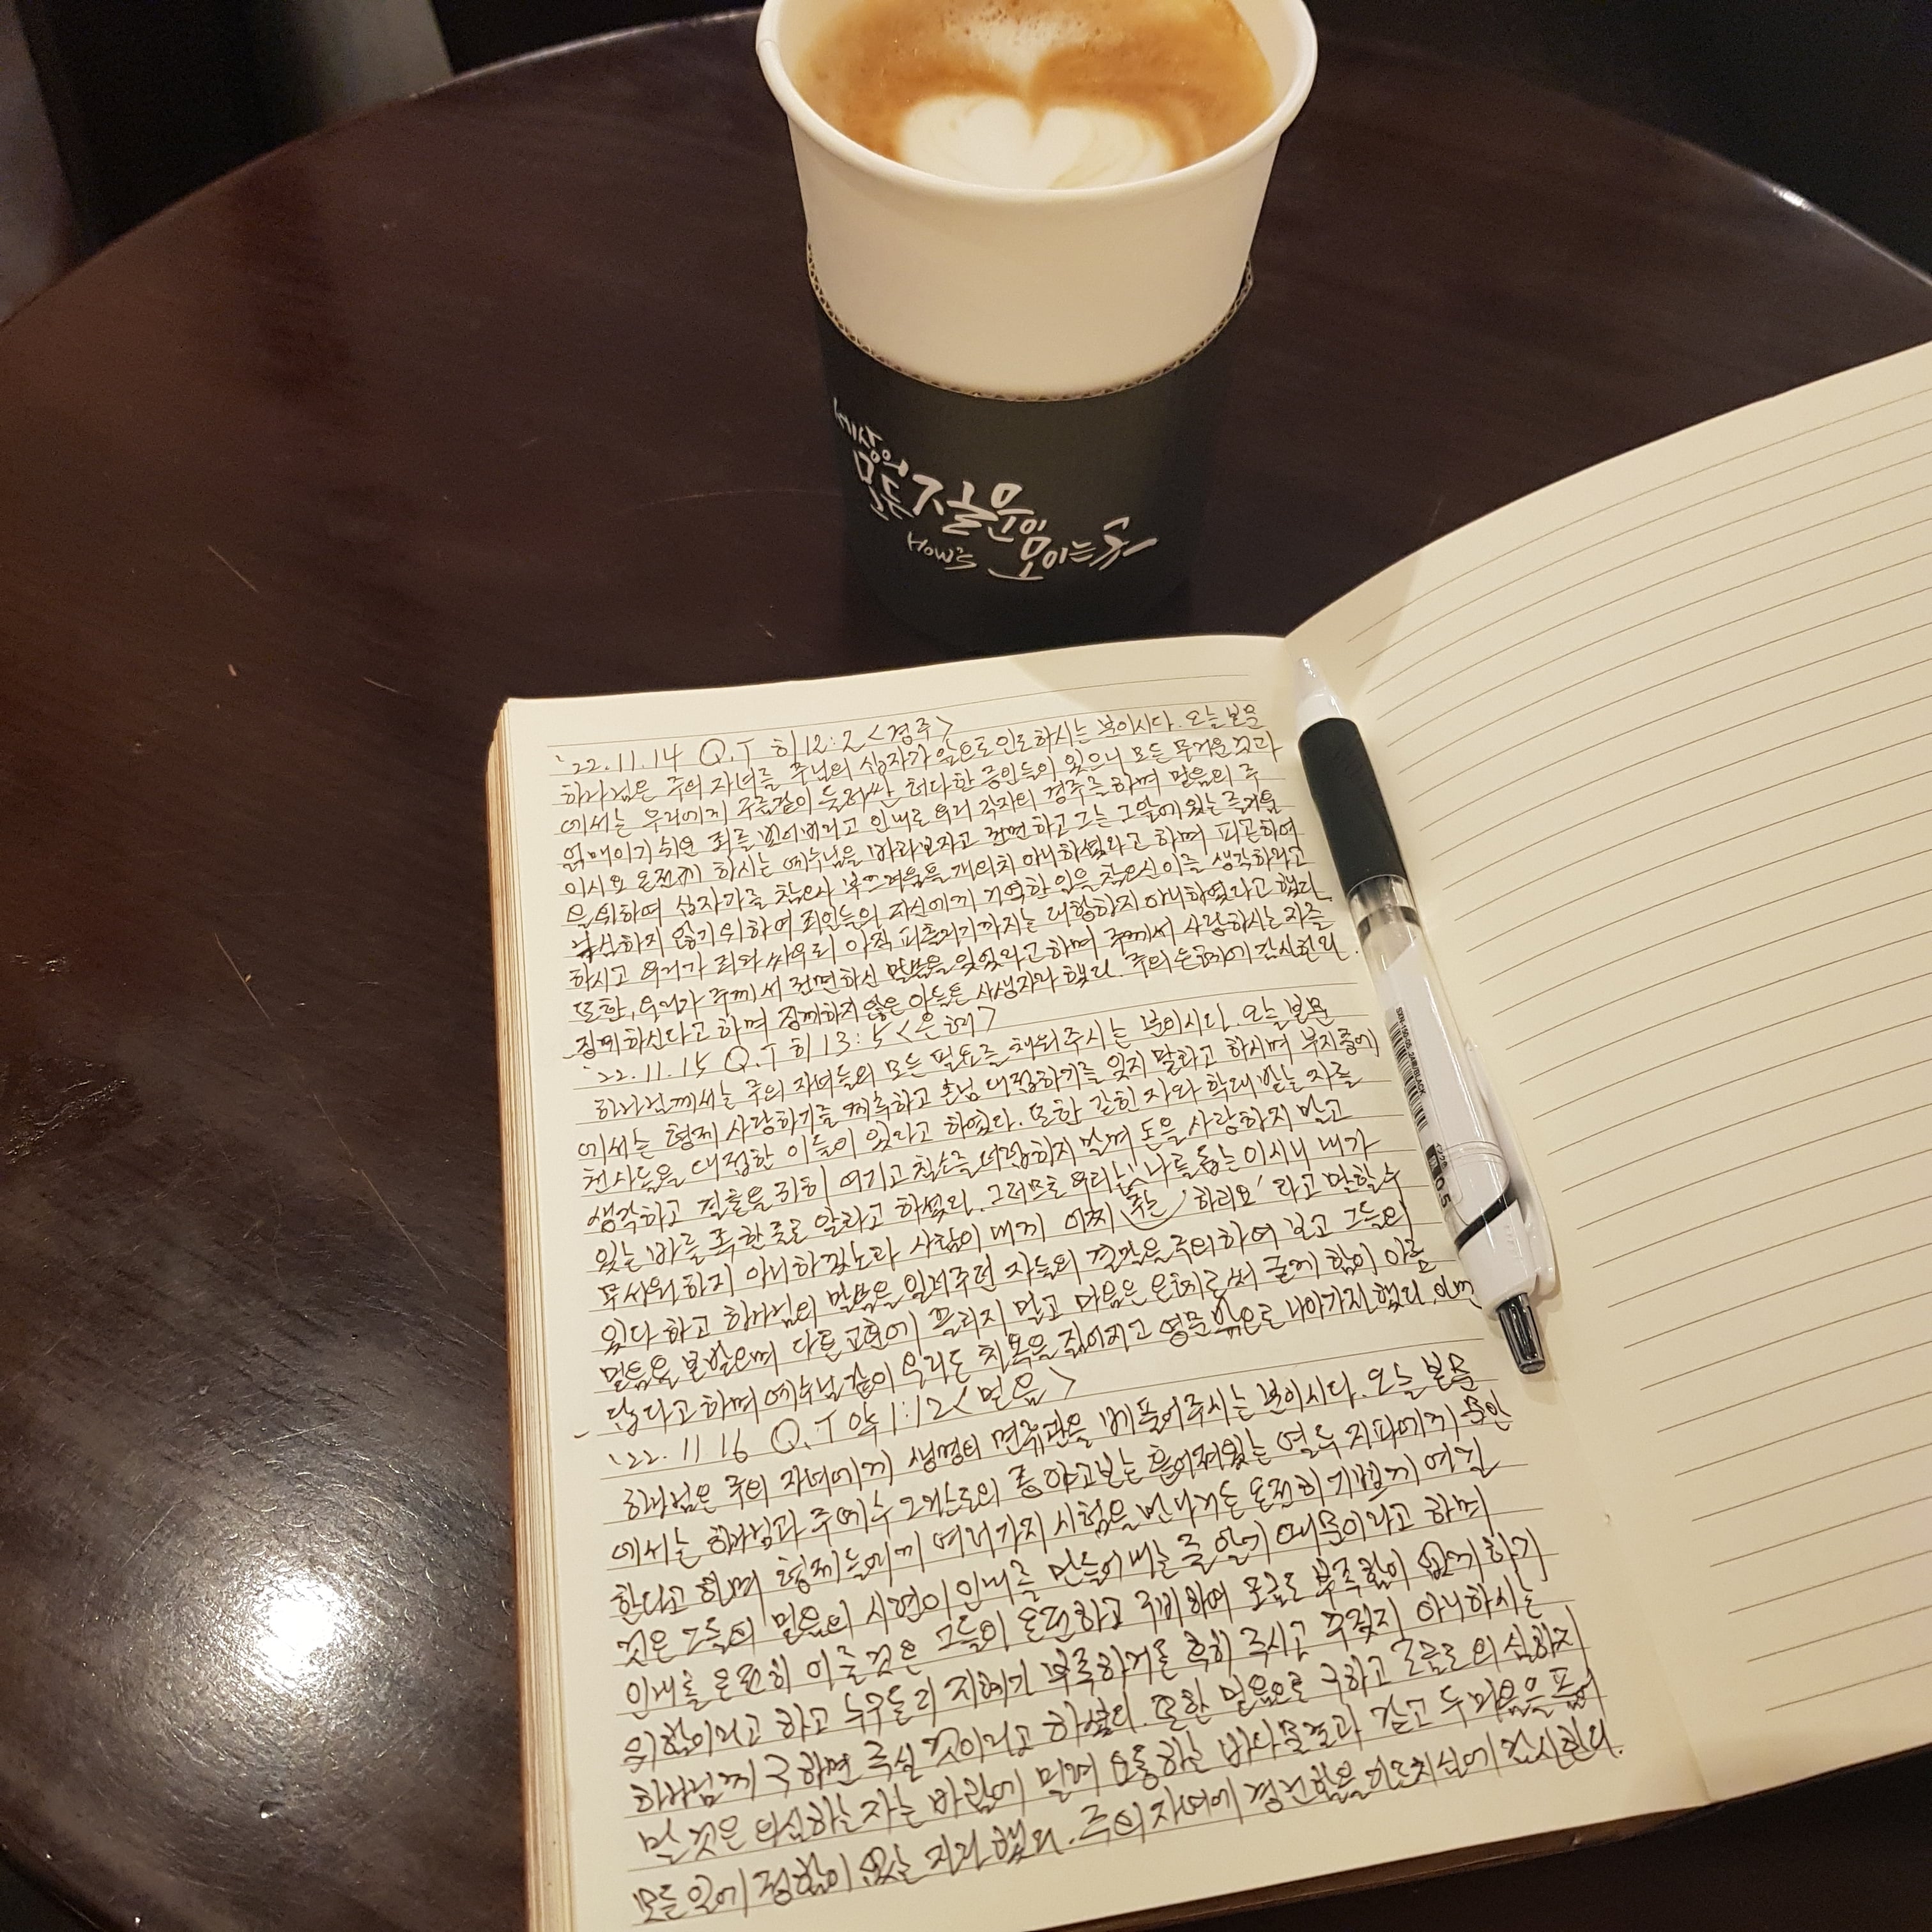 세상의
모든 질문이
How's 모이는 곳
'22.11.14 Q.T 히 12:2 <경주>
하나님은 주의 자녀를 주님의 십자가 앞으로 인도하시는 분이시다. 오늘 본문
에서는 우리에게 구름같이 둘러싼 허다한 증인들이 있으니 모든 무거운 것과
얽매이기 쉬운 죄를 벗어버리고 인내로 우리 각자의 경주를 하며 믿음의 주
이시요 온전케 하시는 예수님을 바라보자고 전면하고 그는 그 앞에 있는 즐거움
을 위하여 십자가를 참으사 부끄러움을 개의치 아니하셨다고 하며 피곤하여
낙심하지 않기 위하여 죄인들의 자신에게 거역한 일을 참으신 이를 생각하라고
하시고 우리가 죄와 싸우되 아직 피흘리기까지는 대항하지 아니하였다고 했다.
또한, 우리가 주께서 전면하신 말씀을 잊었다고 하며 주께서 사랑하시는 자를
징계하신다고 하며 징계하지 않은 아들은 사생자라 했다. 주의 은혜에 감사한다.
'22.11.15 Q.T 히 13:5 <은혜>
하나님께서는 주의 자녀들의 모든 필요를 채워주시는 분이시다. 오늘 본문
에서는 형제 사랑하기를 계속하고 손님 대접하기를 잊지 말라고 하시며 부지중에
천사들을 대접한 이들이 있다고 하였다. 또한 갇힌 자와 학대 받는 자를
생각하고 결혼을 귀히 여기고 침소를 더럽히지 말며 돈을 사랑하지 말고
있는 바를 족한 줄로 알라고 하셨다. 그러므로 우리는 '나를 돕는 이시니 내가
무서워하지 아니하겠노라 사람이 내게 어찌 하리요' 라고 말할 수
있다 하고 하나님의 말씀을 일러주던 자들의 결말을 주의하여 보고 그들의
믿음을 본받으며 다른 교훈에 끌리지 말고 마음은 은혜로써 굳게 함이 아름
답다고 하며 예수님 같이 우리도 치욕을 짊어지고 영문 밖으로 나아가자 했다.
'22.11.16 Q.T 약 1:12 <믿음>
하나님은 주의 자녀에게 생명의 면류관을 베풀어주시는 분이시다. 오늘 본문
에서는 하나님과 주 예수 그리스도의 종 야고보는 흩어져있는 열두 지파에게 문안
한다고 하며 형제들에게 여러가지 시험을 만나거든 온전히 기쁘게 여길
것은 그들의 믿음의 시련이 인내를 만들어 내는 줄 알기 때문이라고 하며
인내를 온전히 이룰 것은 그들이 온전하고 구비하여 조금도 부족함이 없게 하기
위함이라고 하고 누구든지 지혜가 부족하거든 후히 주시고 꾸짖지 아니하시는
하나님께 구하면 주실 것이라고 하셨다. 또한 믿음으로 구하고 조금도 의심하지
말 것은 의심하는 자는 바람에 밀려 요동하는 바다물결과 같고 두 마음을 품어
모든 일에 정함이 없는 자라 했다. 주의 자녀에 경건함을 감사한다.